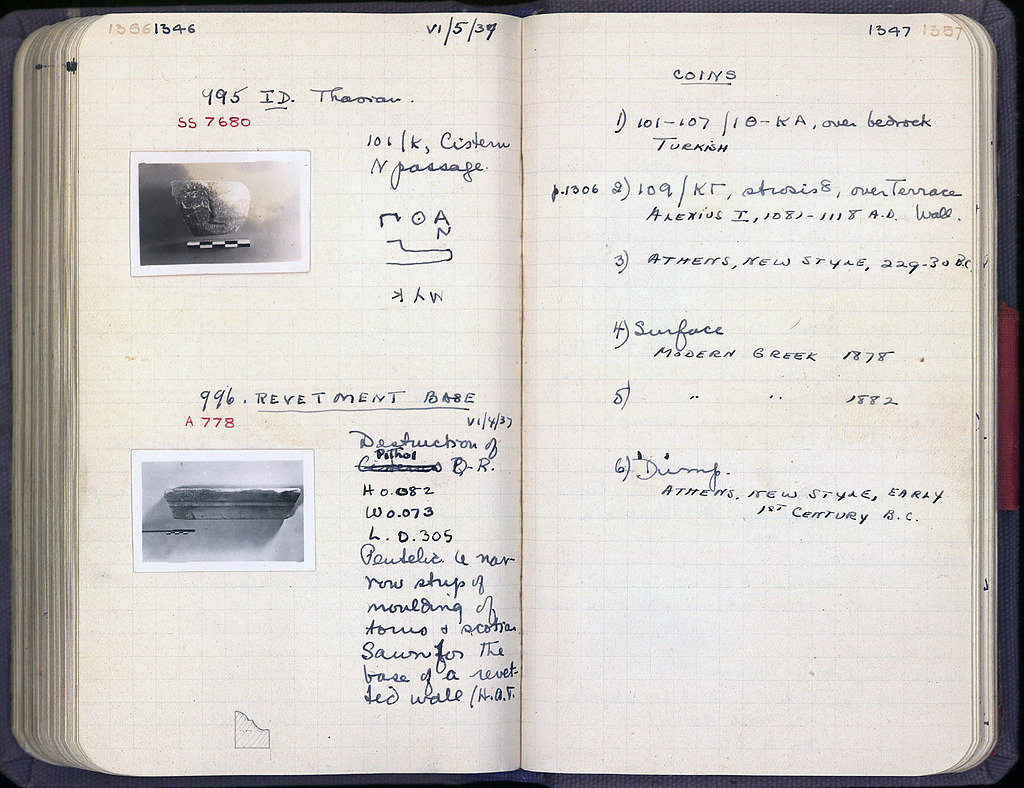 1336 1346
VI/5/37
995 ID. Thasian.
SS 7680
101/K, Cistern
N passage.
996. REVETMENT BASE
A 778
VI/4/37
Destruction of
Pithoi
Q-R.
H 0.082
W 0.073
L. 0.305
Pentelic. A nar-
row strip of
moulding of
torus & scotia
Sawn for the
base of a revet-
ted wall (H.A.T.
1347 1337
COINS
1) 101-107/ΙΘ-ΚΑ, over bedrock
TURKISH
p.1306 2) 109/ΚΓ, strosis 8, over Terrace
ALEXIUS I, 1081-1118 A.D. Wall.
3) ATHENS, NEW STYLE, 229-30 B.C.
4) Surface
MODERN GREEK 1878
5) " " 1882
6) Dump.
ATHENS, NEW STYLE, EARLY
1ST CENTURY B.C.